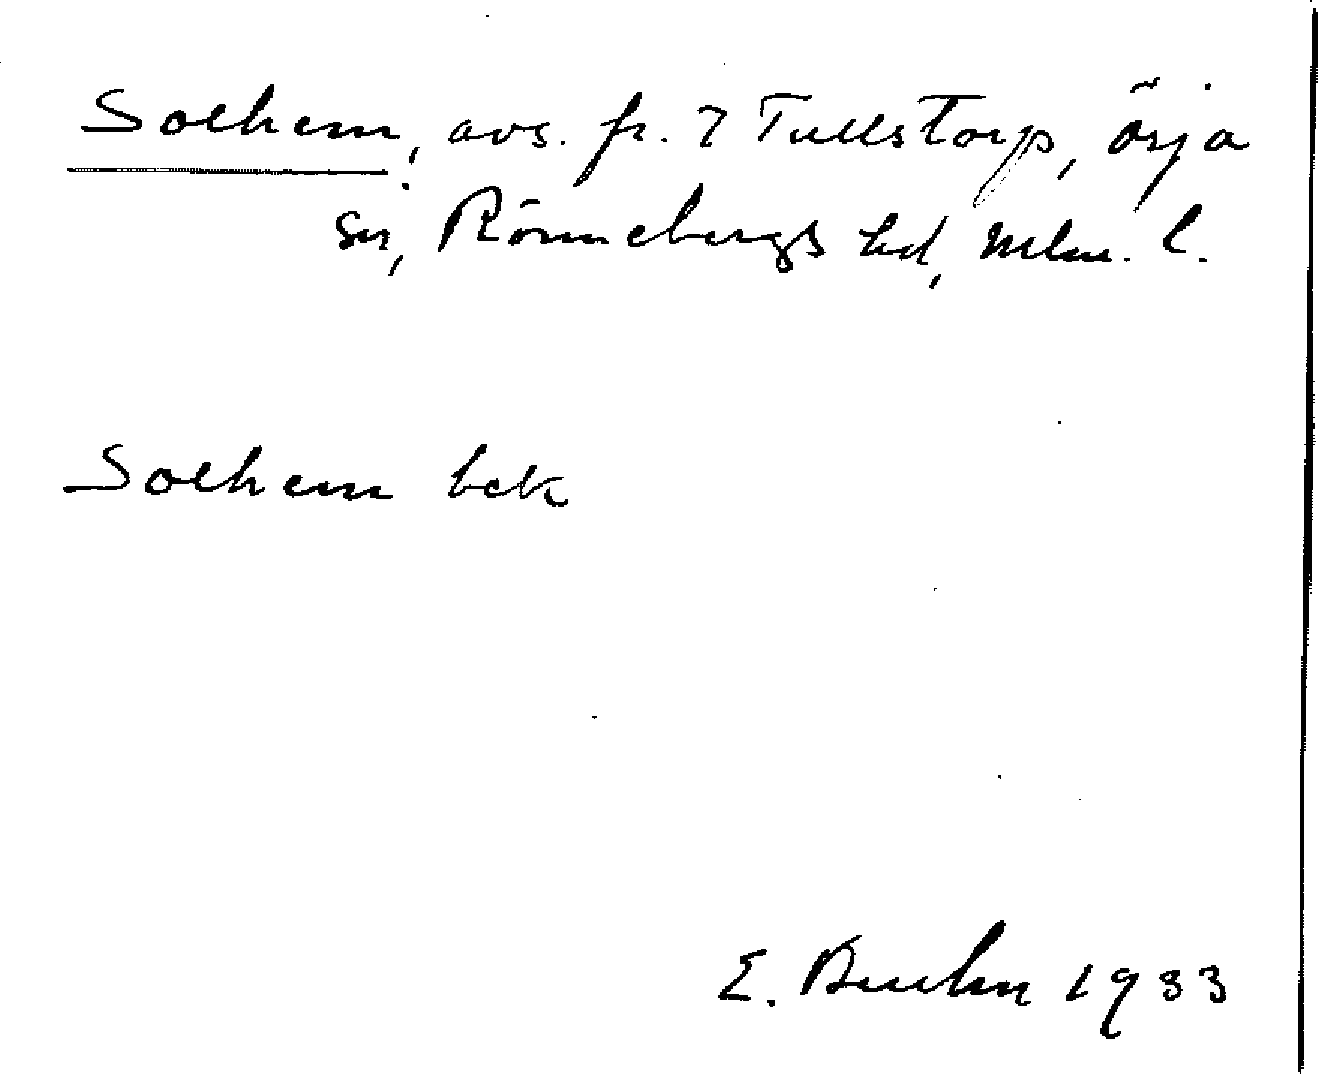 Solhem, avs. fr. 7 Tullstorp, Örja
sn, Rönnebergs hd, Mlm. l.
Solhem bek
E. Bruhn 1933